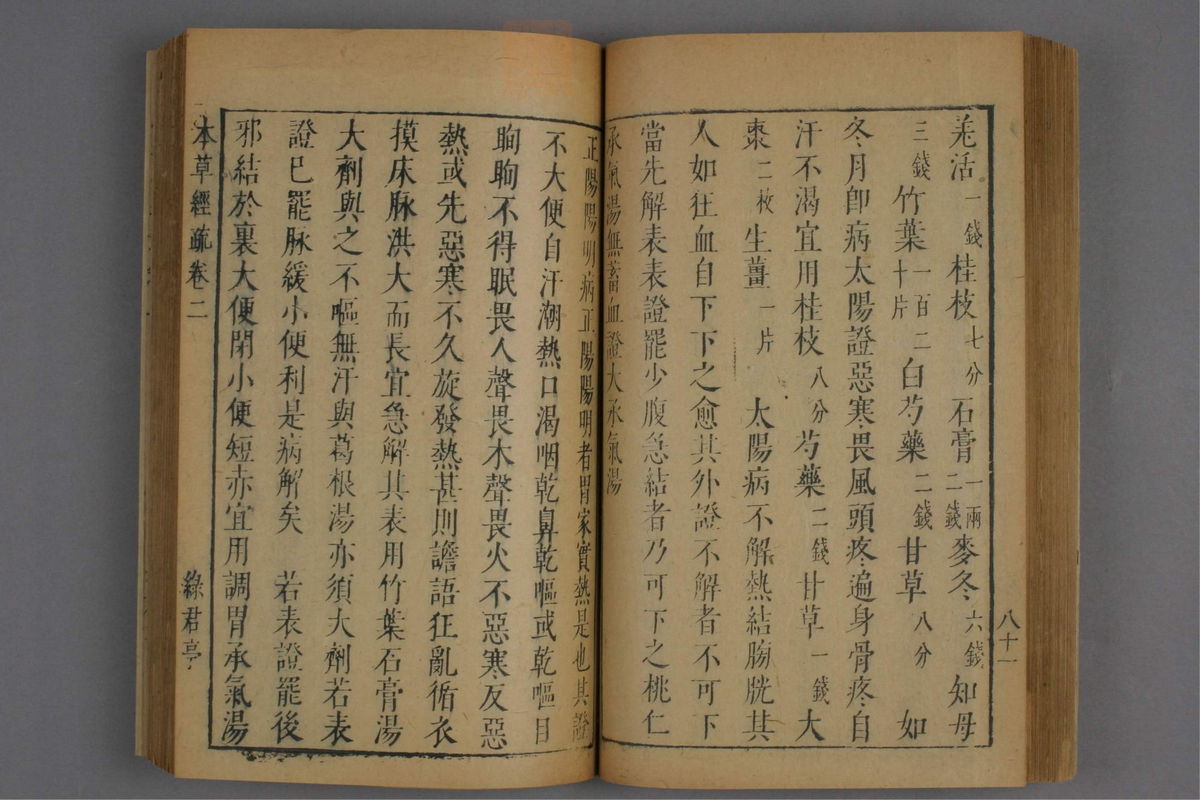 八十一
羌活一錢桂枝七分石膏一兩二錢麥冬六錢知母
三錢竹葉一百二十片白芍藥二錢甘草八分如
冬月卽病太陽證惡寒畏風頭疼遍身骨疼自
汗不渴宜用桂枝八分芍藥二錢甘草一錢大
棗二枚生薑一片太陽病不解熱結膀胱其
人如狂血自下下之愈其外證不解者不可下
當先解表表證罷少腹急結者乃可下之桃仁
承氣湯無蓄血證大承氣湯
正陽陽明病正陽陽明者胃家實熱是也其證
不大便自汗潮熱口渴咽乾鼻乾嘔或乾嘔目
眴眴不得眠畏人聲畏木聲畏火不惡寒反惡
熱或先惡寒不久旋發熱甚則譫語狂亂循衣
摸床脉洪大而長宜急解其表用竹葉石膏湯
大劑與之不嘔無汗與葛根湯亦須大劑若表
證已罷脉緩小便利是病解矣若表證罷後
邪結於裏大便閉小便短赤宜用調胃承氣湯
本草經疏卷二
綠君亭